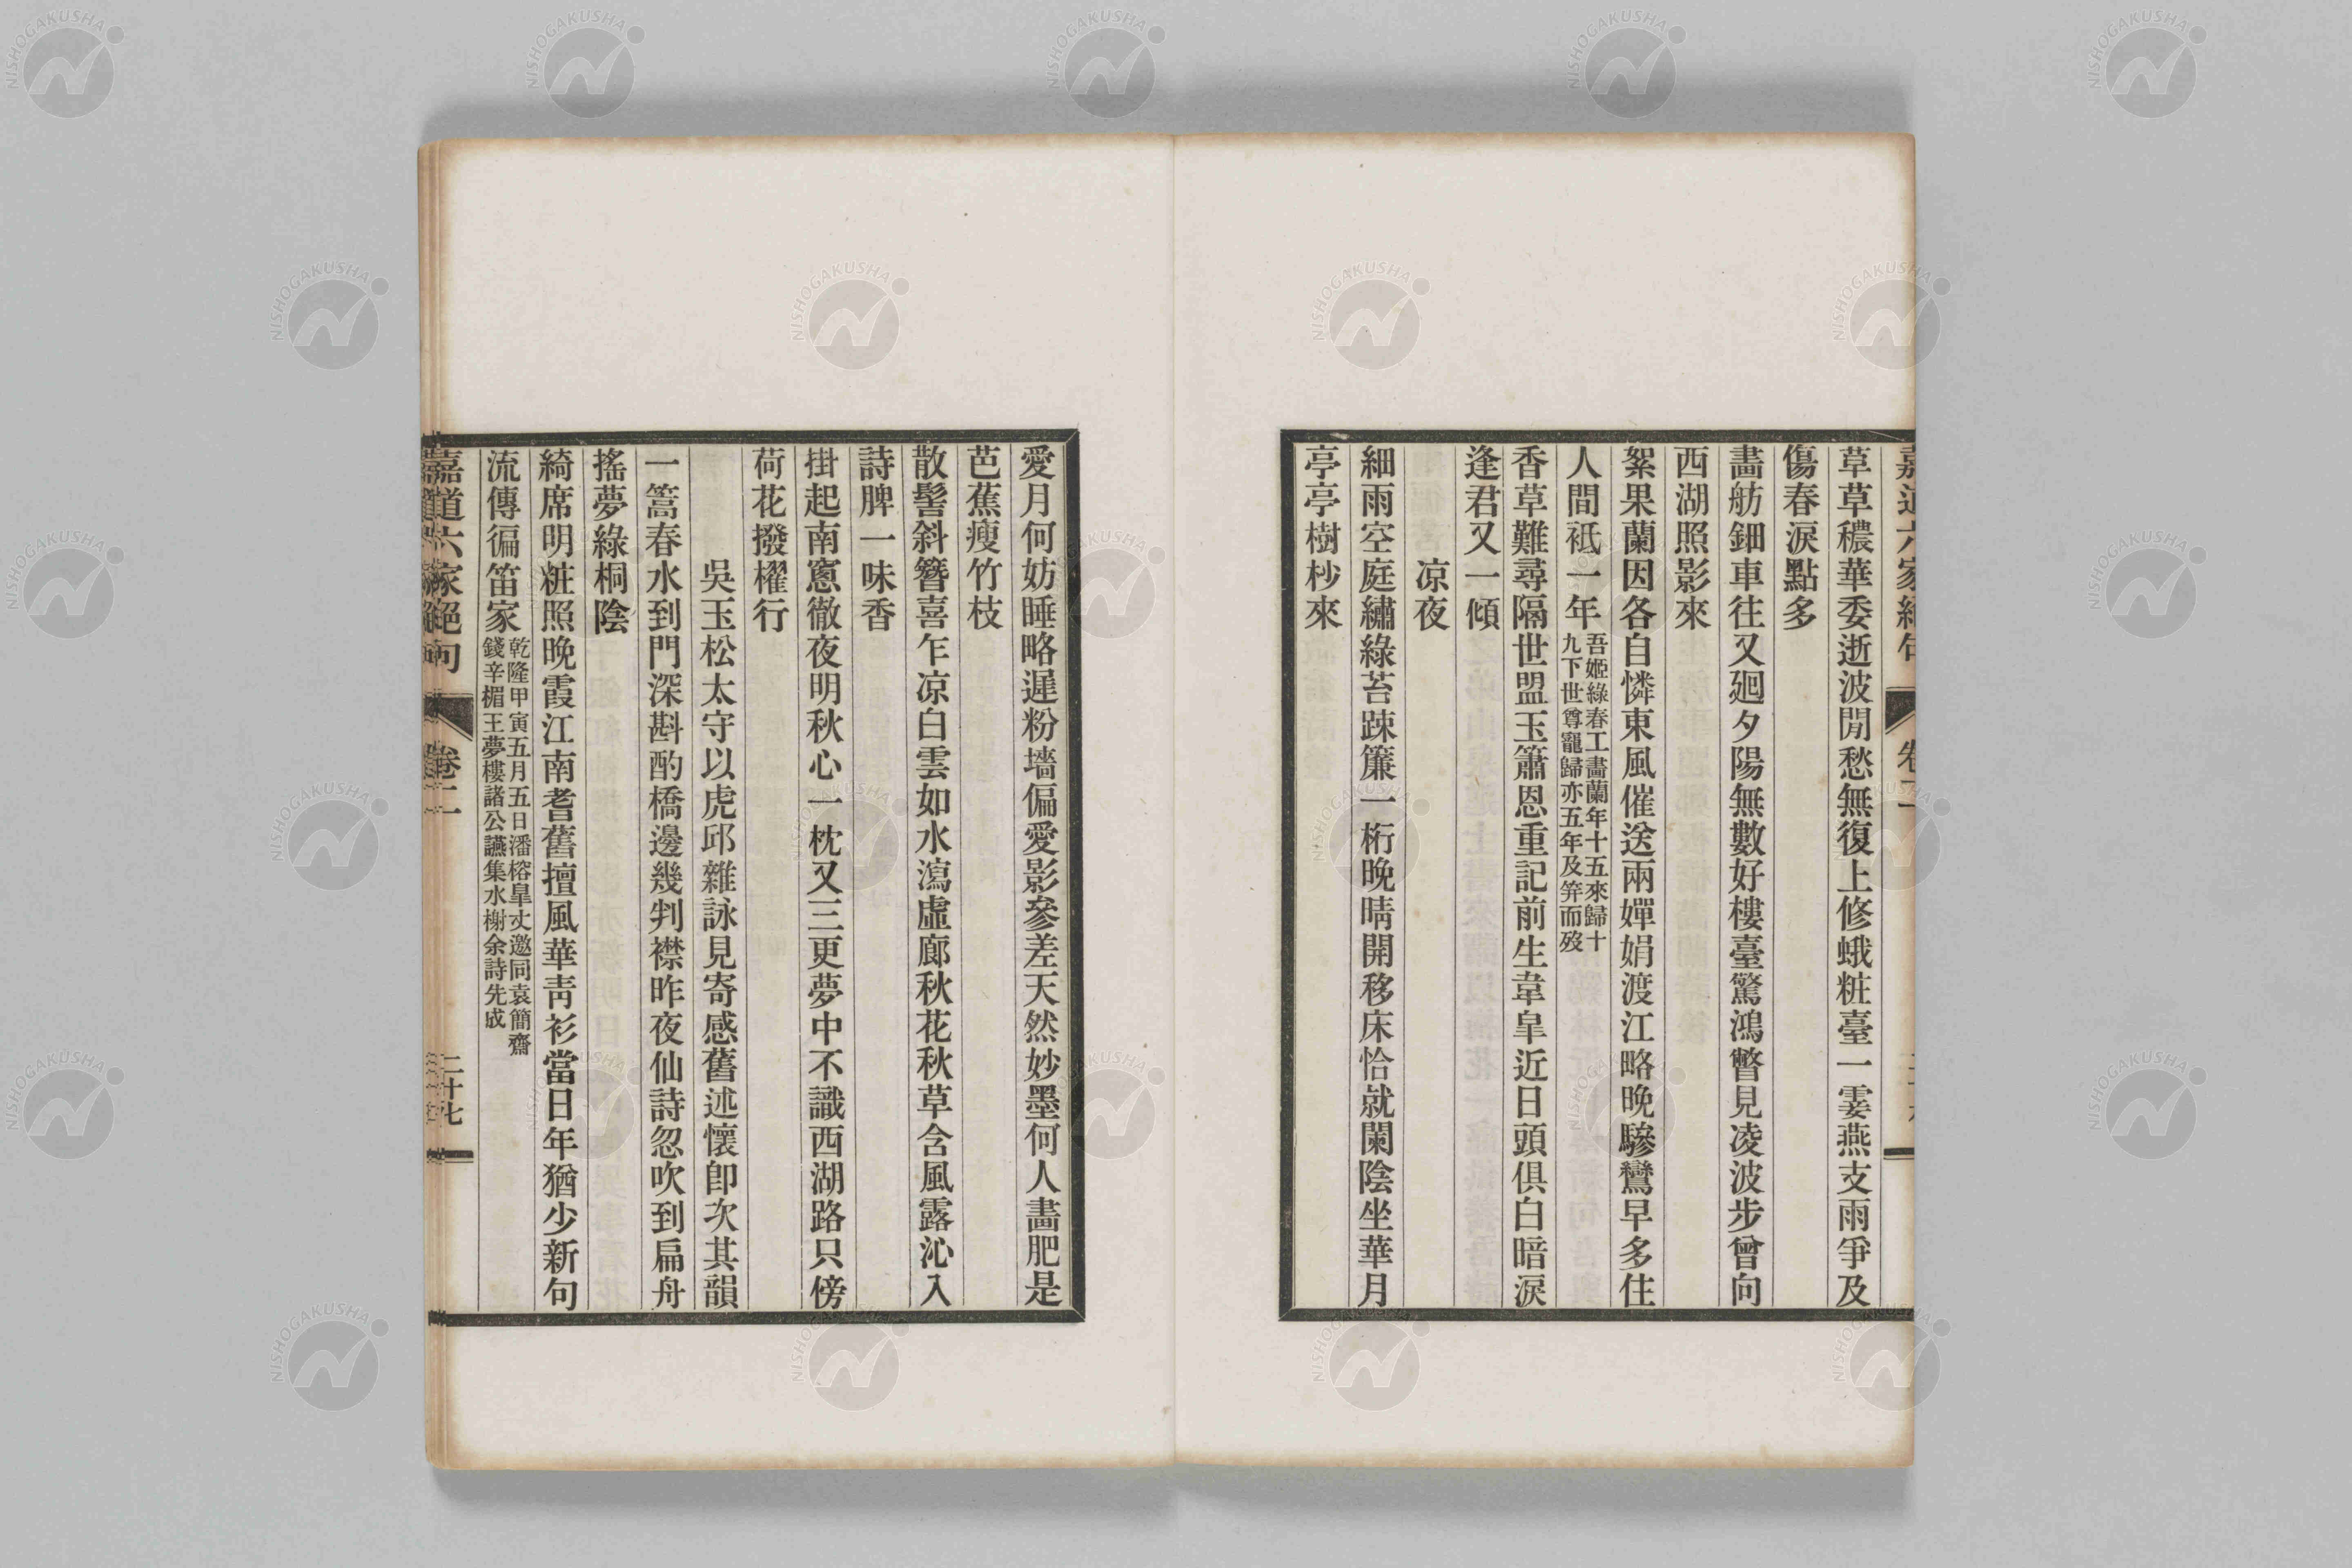 草草穠華委逝波閒愁無復上修蛾粧臺一霎燕支雨爭及
傷春淚點多
畵舫鈿車往又廻夕陽無數好樓臺驚鴻瞥見凌波步曾向
西湖照影來
絮果蘭因各自憐東風催送兩嬋娟渡江略晚驂鸞早多住
人間祗一年
吾姬綠春工畵蘭年十五來歸十
九下世尊寵歸亦五年及笄而歿
香草難尋隔世盟玉簫恩重記前生韋臯近日頭俱白暗淚
逢君又一傾
凉夜
細雨空庭繡綠苔疎簾一桁晚晴開移床恰就闌陰坐華月
亭亭樹杪來
愛月何妨睡略遲粉墻偏愛影參差天然妙墨何人畵肥是
芭蕉瘦竹枝
散髻斜簪喜乍凉白雲如水瀉虛廊秋花秋草含風露沁入
詩脾一味香
掛起南窻徹夜明秋心一枕又三更夢中不識西湖路只傍
荷花撥櫂行
吳玉松太守以虎邱雜詠見寄感舊述懷卽次其韻
一篙春水到門深斟酌橋邊幾判襟昨夜仙詩忽吹到扁舟
搖夢綠桐陰
綺席明粧照晚霞江南耆舊擅風華靑衫當日年猶少新句
流傳徧笛家
乾隆甲寅五月五日潘榕臯丈邀同袁簡齋
錢辛楣王夢樓諸公讌集水榭余詩先成
嘉道六家絕句
卷二
二十七
NISHOGAKUSHA